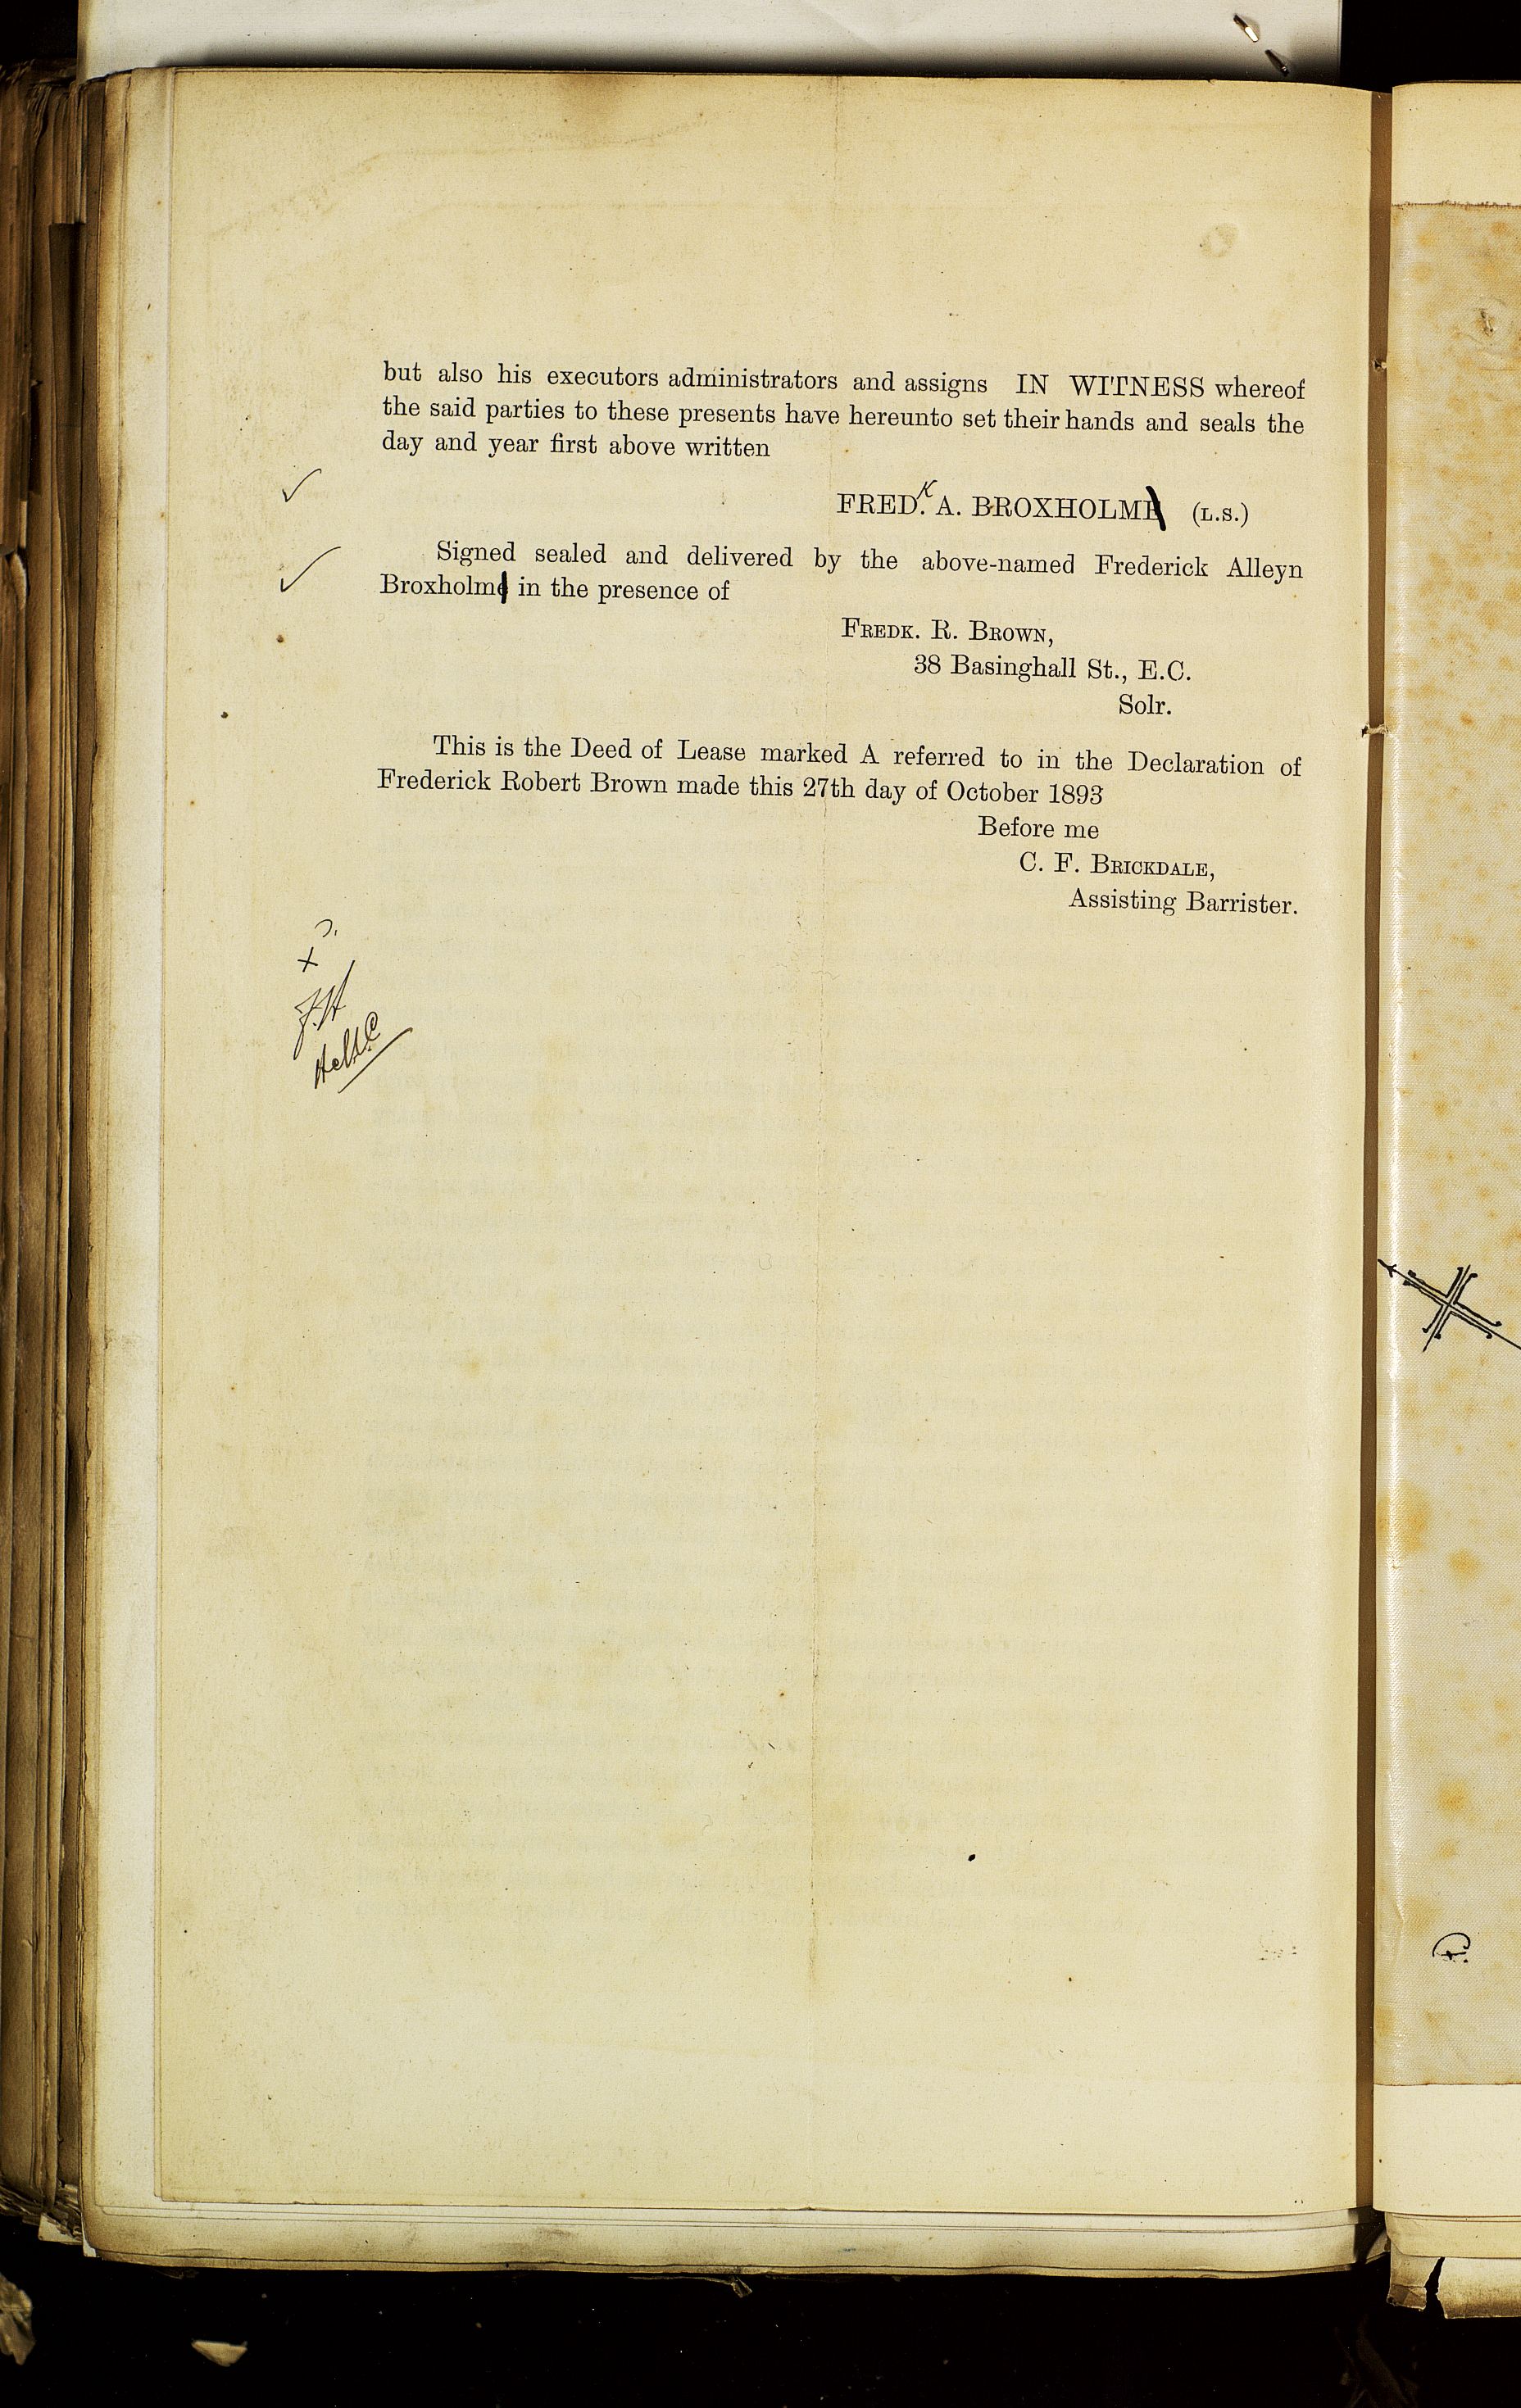 but also his executors administrators and assigns IN WITNESS whereof
the said parties to these presents have hereunto set their hands and seals the
day and year first above written
FRED.K A. BROXHOLM (L.S.)
Signed sealed and delivered by the above-named Frederick Alleyn
Broxholm in the presence of
FREDK. R. BROWN,
38 Basinghall St., E.C.
Solr.
This is the Deed of Lease marked A referred to in the Declaration of
Frederick Robert Brown made this 27th day of October 1893
Before me
C. F. BRICKDALE,
Assisting Barrister.